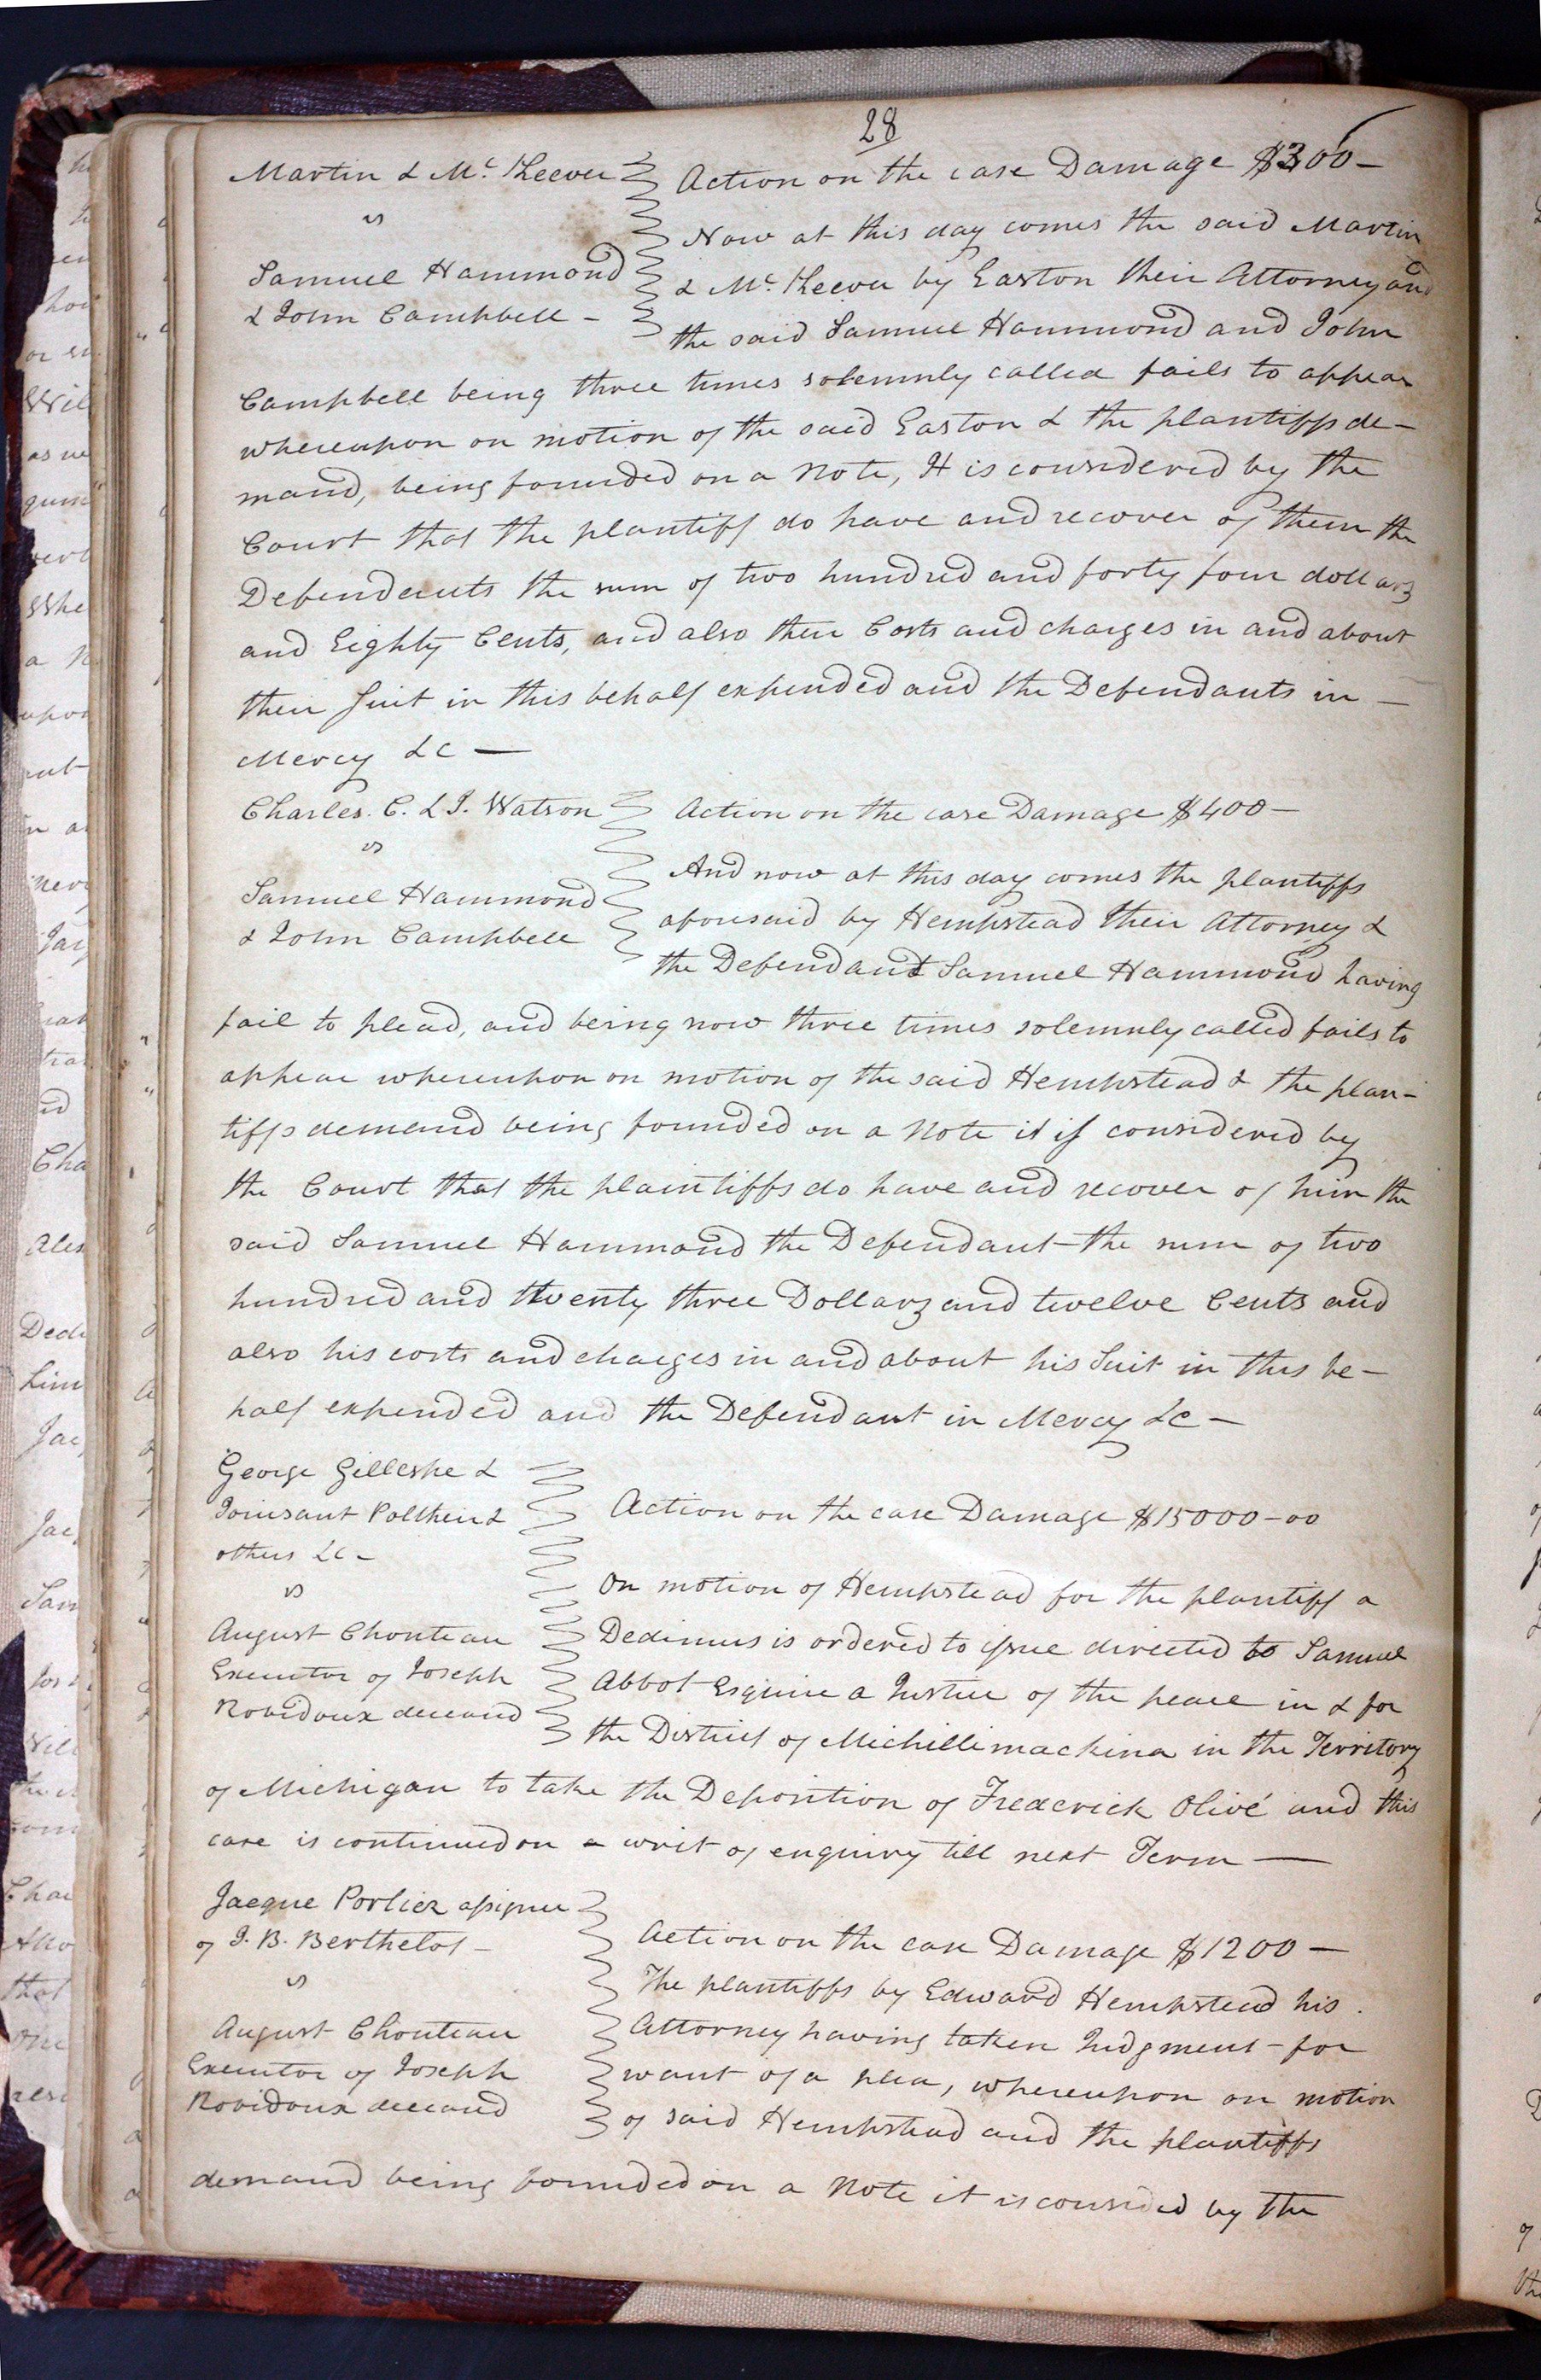 28
Martin & Mc Keever
vs
Samuel Hammond
& John Campbell -
Action on the case Damage $300 -
Now at this day comes the said Martin
& Mc Keever by Easton their Attorney and
the said Samuel Hammond and John
Campbell being three times solemnly called fails to appear
whereupon on motion of the said Easton & the plantiffs de-
mand, being founded on a Note, It is considered by the
Court that the plantiff do have and recover of them the
Defendants the sum of two hundred and forty four dollars
and Eighty Cents, and also their Costs and charges in and about
their Suit in this behalf expended and the Defendants in -
Mercy &c -
Charles. C. & J. Watson
vs
Samuel Hammond
& John Campbell
Action on the case Damage $400 -
And now at this day comes the plantiffs
aforesaid by Hempstead their Attorney &
the Defendant Samuel Hammond having
fail to plead, and being now three times solemnly called fails to
appear whereupon on motion of the said Hempstead & the plan-
tiffs demand being founded on a Note it is considered by
the Court that the plaintiffs do have and recover of him the
said Samuel Hammond the Defendant - the sum of two
hundred and twenty three Dollars and twelve Cents and
also his costs and charges in and about his Suit in this be-
half expended and the Defendant in Mercy &c -
George Gilleshe &
Toinsant Polthein &
others &c -
vs
August Chouteau
Executor of Joseph
Robidoux deceased
Action on the case Damage $15000-00
On motion of Hempstead for the plantiff a
Dedimus is ordered to issue directed to Samuel
Abbot Esquire a Justice of the peace in & for
the District of Michillimackina in the Territory
of Michigan to take the Deposition of Frederick Olivé and this
case is continued on a writ of enquiry till next Term -
Jacque Porlier assignee
of J. B. Berthelot -
vs
August Chouteau
Executor of Joseph
Robidoux deceased
Action on the case Damage $1200 -
The plantiffs by Edward Hempstead his
Attorney having taken Judgment - for
want of a plea, whereupon on motion
of said Hempstead and the plantiffs
demand being founded on a Note it is considered by the